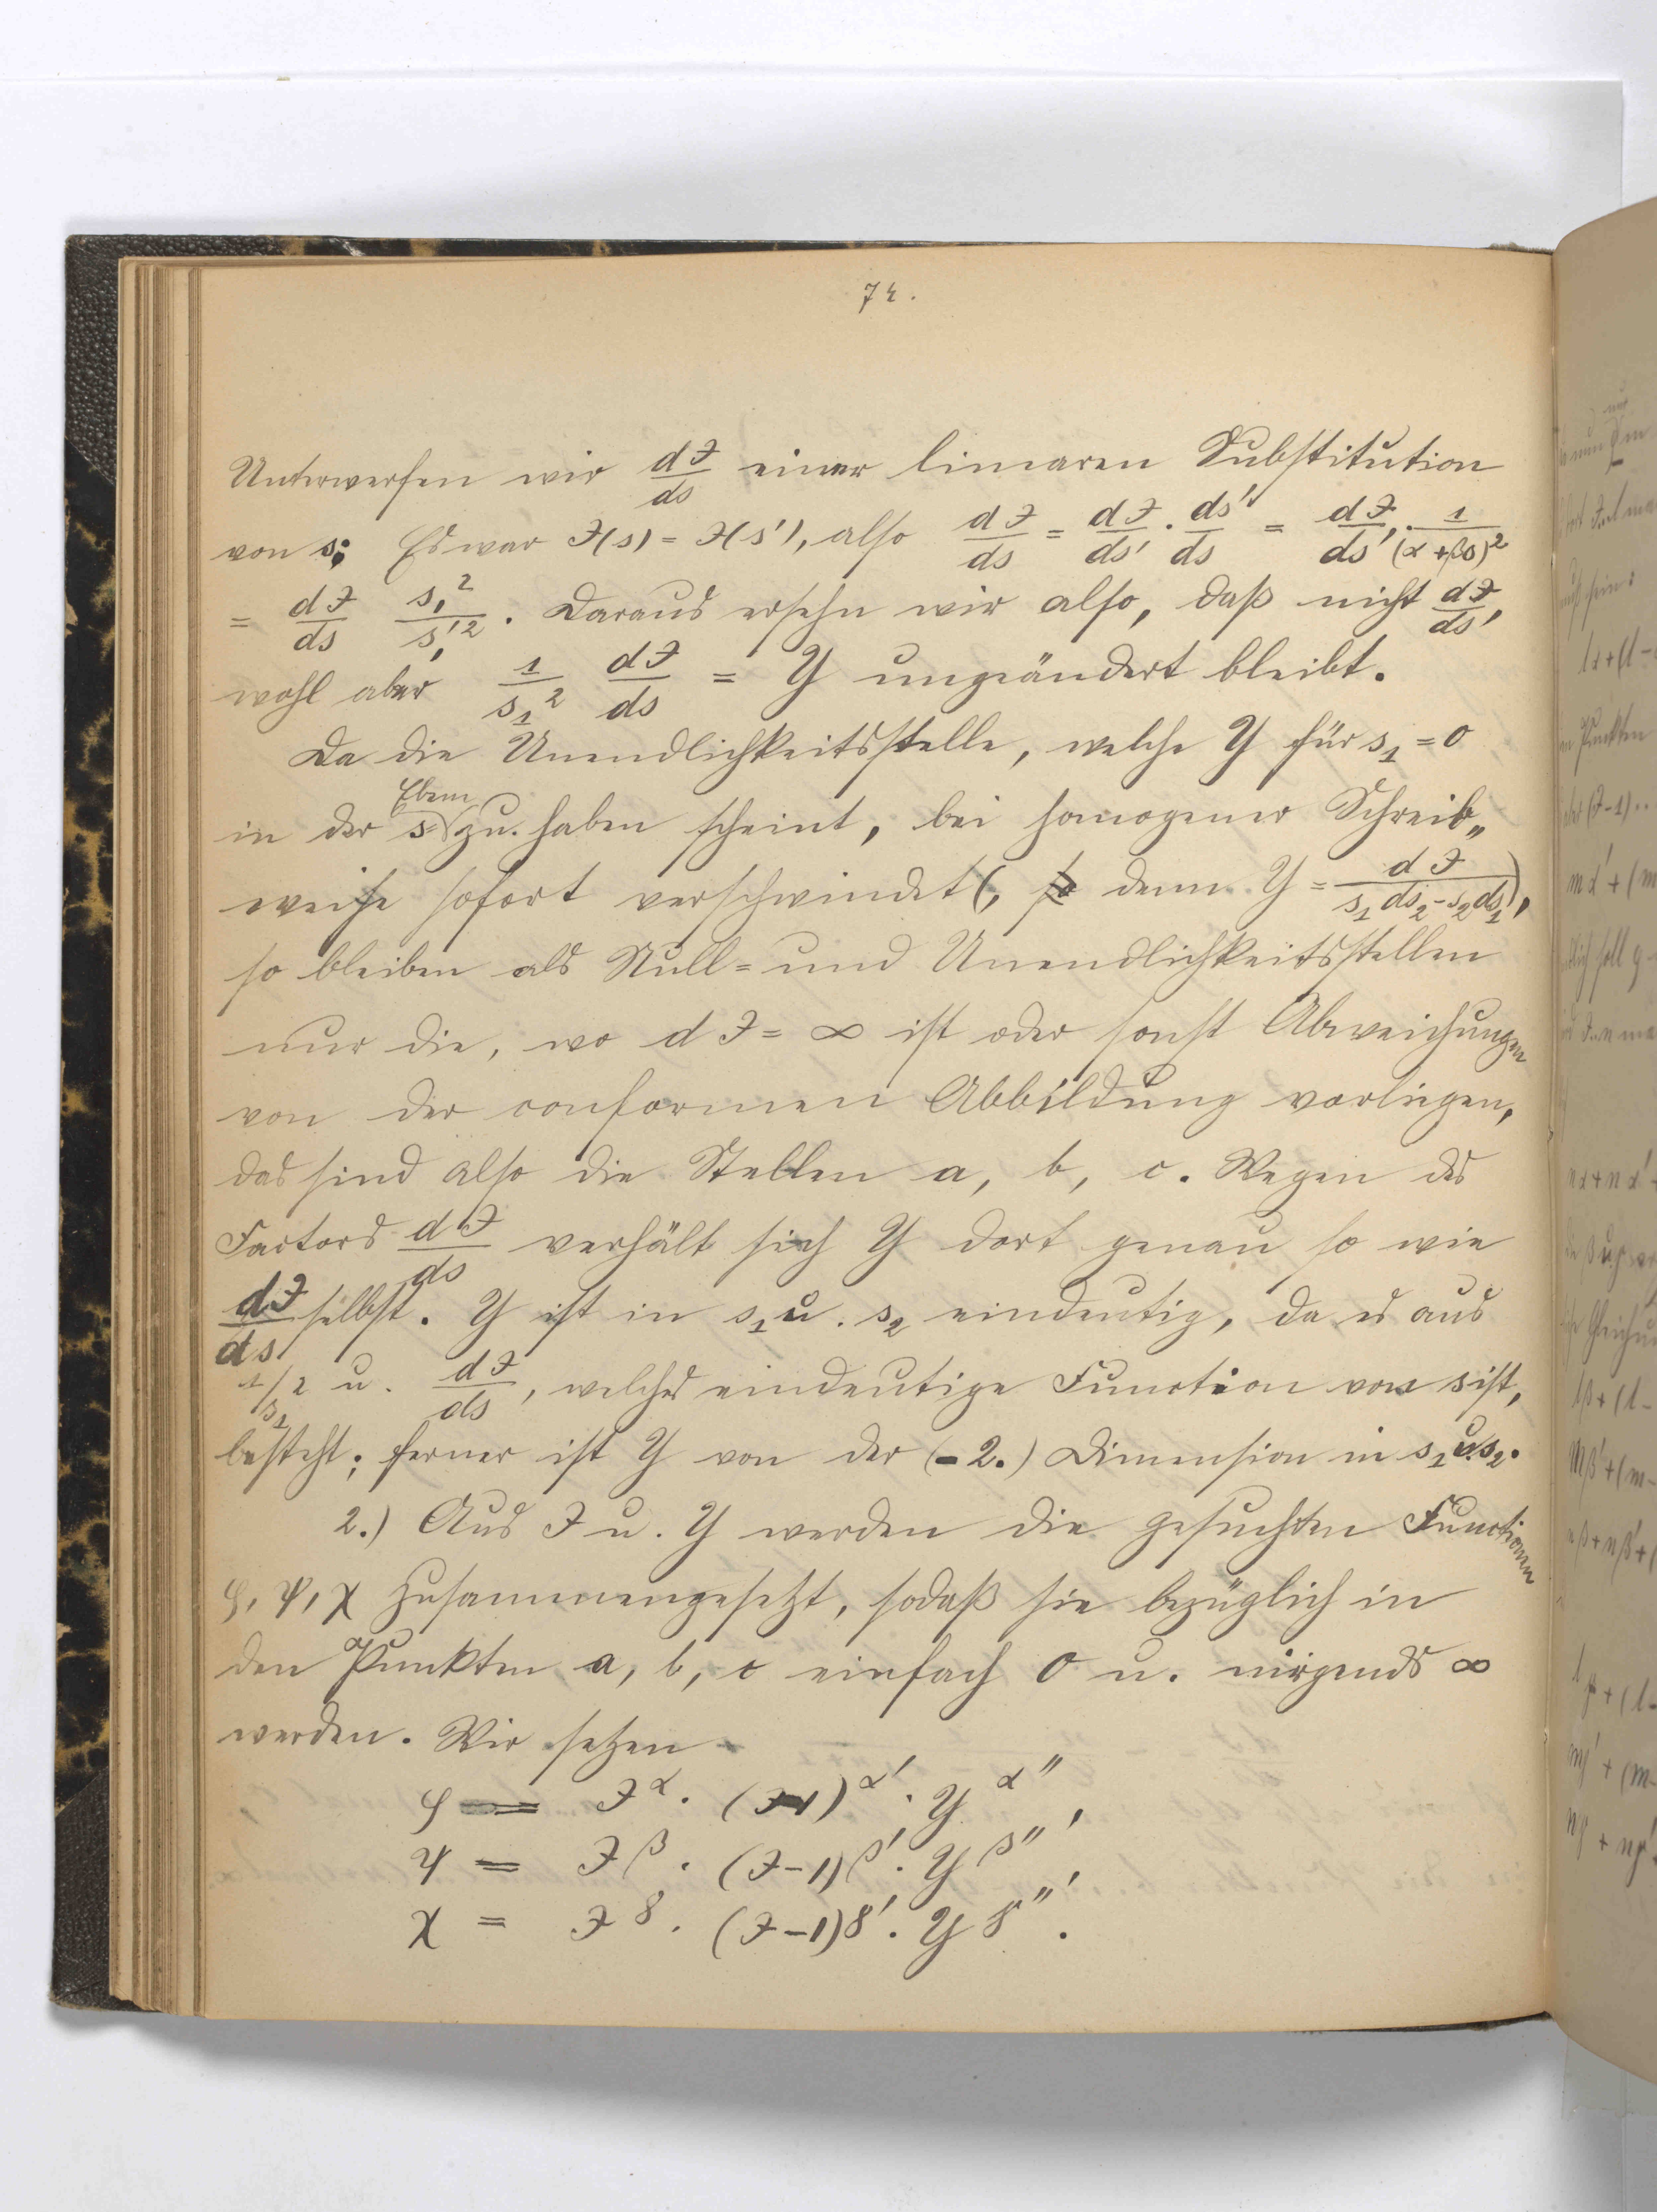 74.
Unterwerfen wir dJ/ds einer linearen Substitution
von s: Es war J(s) = J(s'), also dJ/ds = dJ/ds' · ds'/ds = dJ/ds' · 1/(α+βs)²
= dJ/ds s₁²/s₁'². Daraus ersehn wir also, daß nicht dJ/ds,
wohl aber 1/s₁² dJ/ds = Y ungeändert bleibt.
Da die Unendlichkeitsstelle, welche Y für s₁ = 0
in der s= Ebene zu haben scheint, bei homogener Schreib„
weise sofort verschwindet (, denn Y = dJ/(s₁ds₂-s₂ds₁)),
so bleiben als Null= und Unendlichkeitsstellen
nur die, wo dJ = ∞ ist oder sonst Abweichungen
von der conformen Abbildung vorliegen,
das sind also die Stellen a, b, c. Wegen des
Factors dJ/ds verhält sich Y dort genau so wie
dJ/ds selbst. Y ist in s₁ u. s₂ eindeutig, da es aus
1/s₁² u. dJ/ds, welches eindeutige Function von s ist,
besteht; ferner ist Y von der (-2.) Dimension in s₁ u. s₂.
2.) Aus J u. Y werden die gesuchten Functionen
φ, ψ, χ zusammengesetzt, sodaß sie bezüglich in
den Punkten a, b, c einfach 0 u. nirgends ∞
werden. Wir setzen
φ = J^α · (J-1)^α' · Y^α'',
ψ = J^β · (J-1)^β' · Y^β'',
χ = J^γ · (J-1)^γ' · Y^γ''.